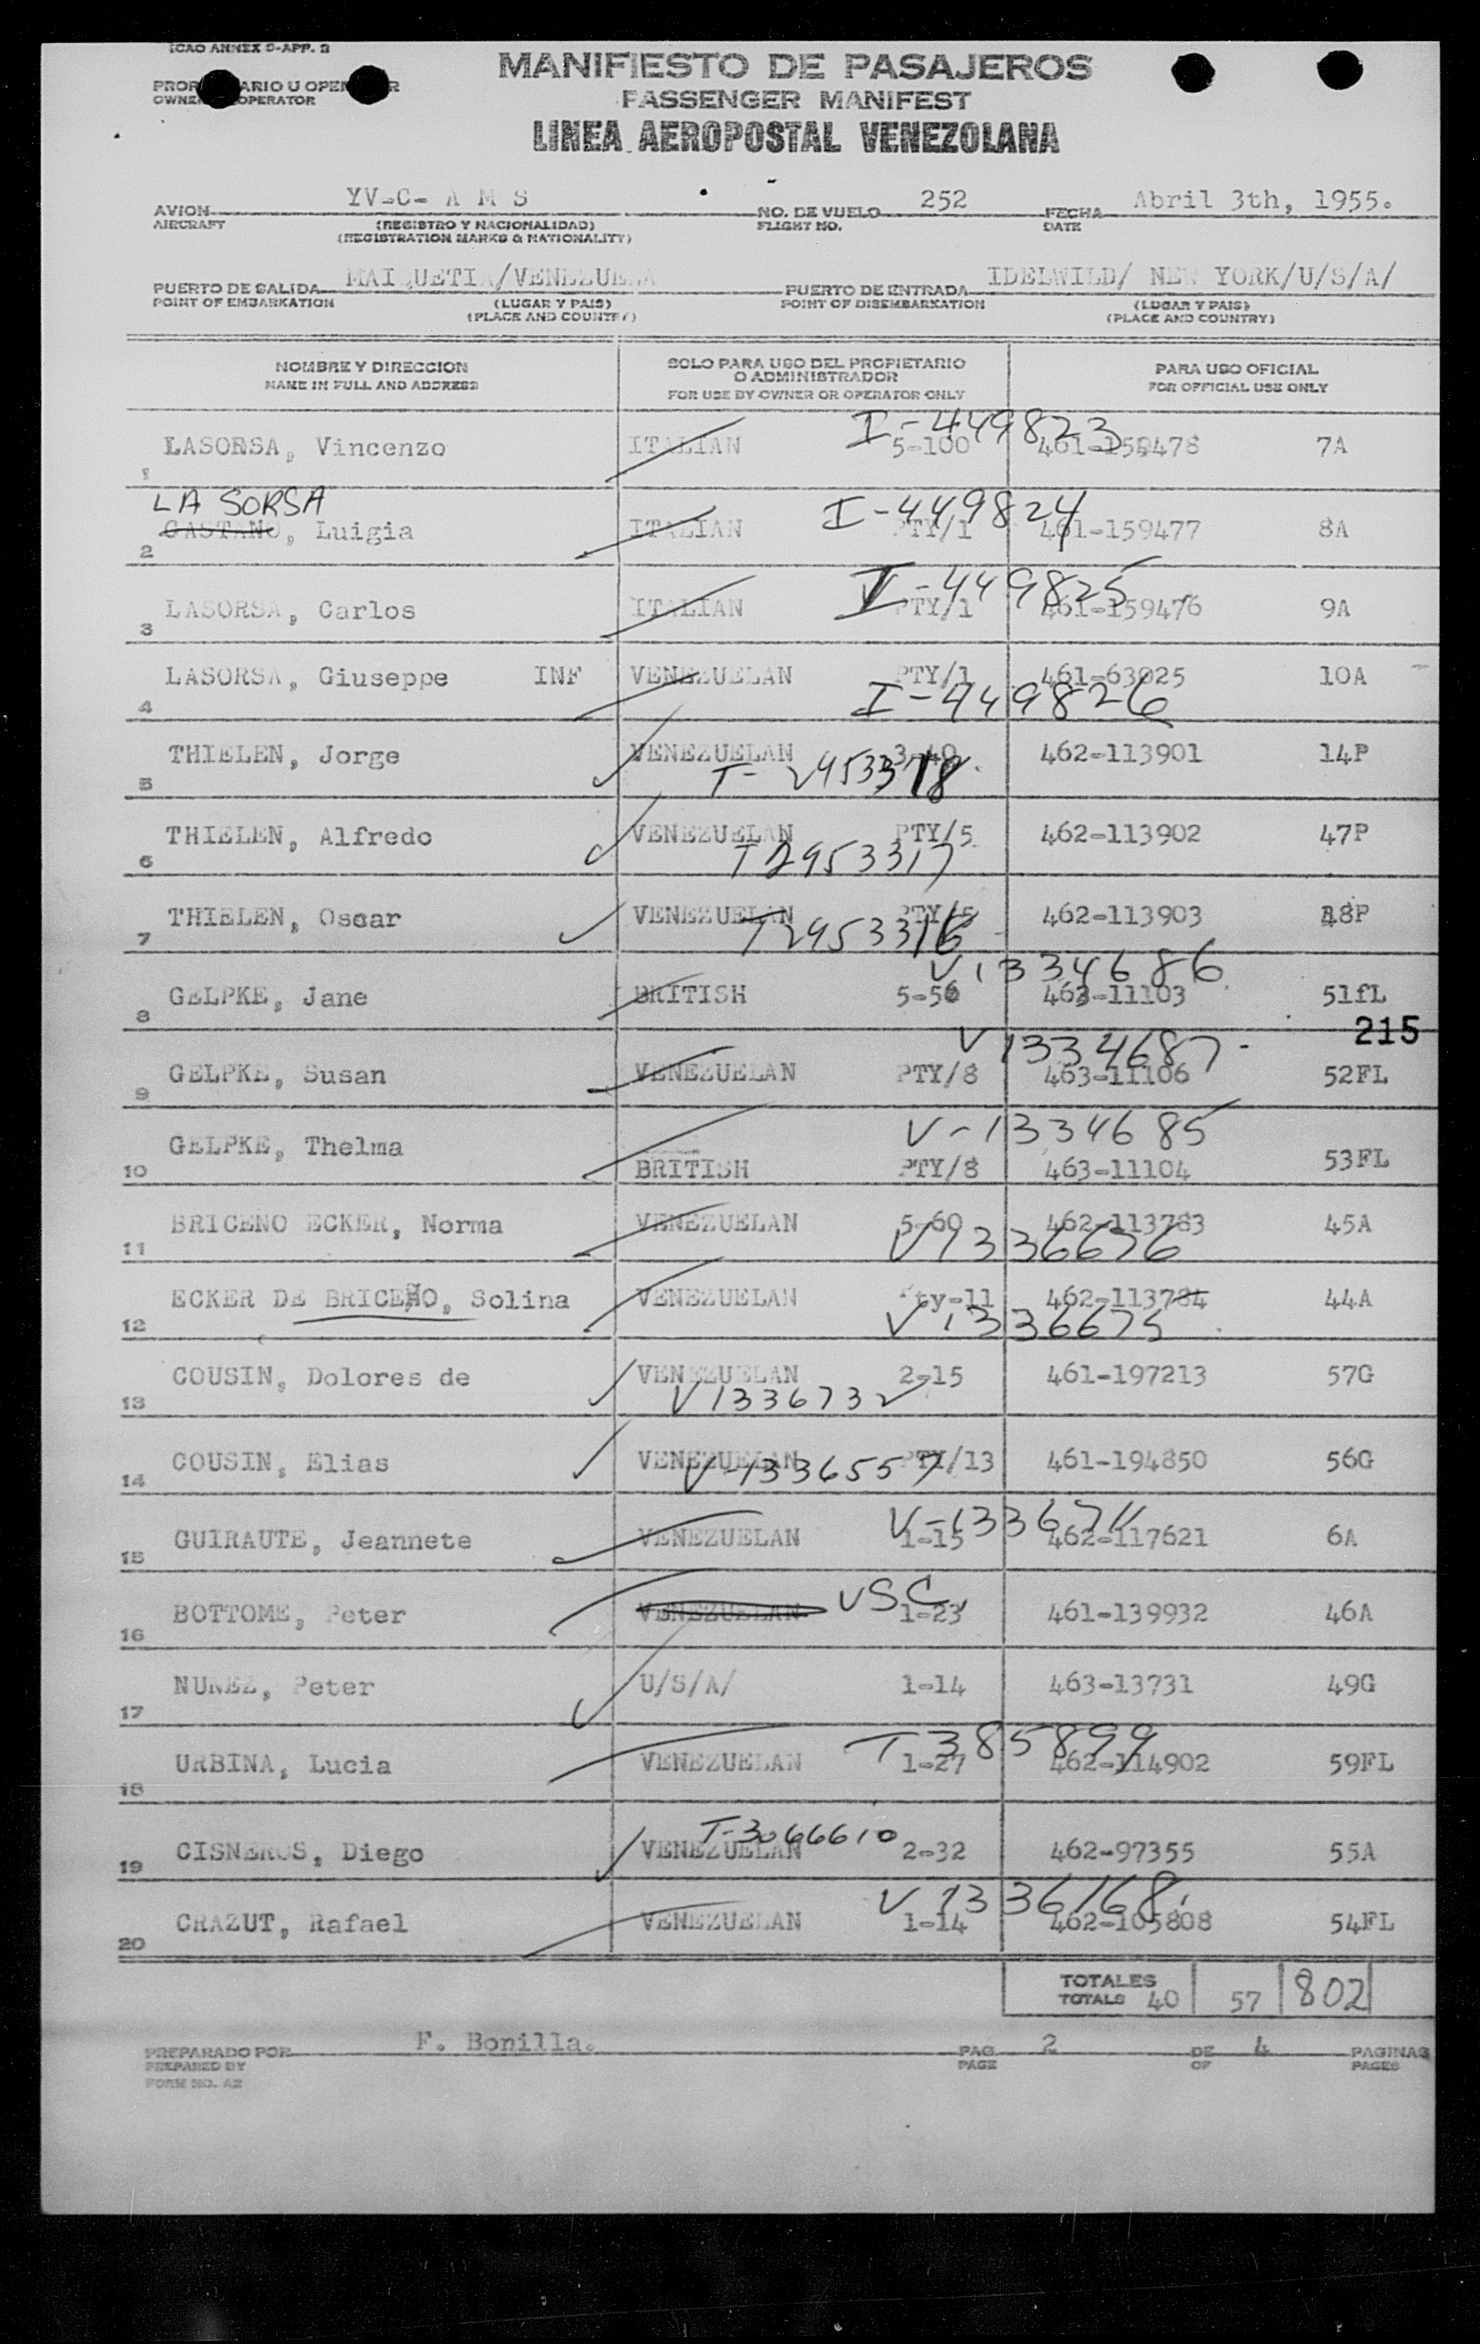 ICAO ANNEX 9-APP. 3
OWNER OPERATOR
MANIFIESTO DE PASAJEROS
PASSENGER MANIFEST
LINEA AEROPOSTAL VENEZOLANA
AVION YV-C- A M S NO. DE VUELO 252 FECHA Abril 3th, 1955.
AIRCRAFT (REGISTRO Y NACIONALIDAD) FLIGHT NO. DATE
(REGISTRATION MARKS & NATIONALITY)
PUERTO DE SALIDA MAIQUETIA/VENEZUELA PUERTO DE ENTRADA IDELWILD/ NEW YORK/U/S/A/
POINT OF EMBARKATION (LUGAR Y PAIS) POINT OF DISEMBARKATION (LUGAR Y PAIS)
(PLACE AND COUNTRY) (PLACE AND COUNTRY)
NOMBRE Y DIRECCION SOLO PARA USO DEL PROPIETARIO O ADMINISTRADOR PARA USO OFICIAL
NAME IN FULL AND ADDRESS FOR USE BY OWNER OR OPERATOR ONLY FOR OFFICIAL USE ONLY
I-449823
1 LASORSA, Vincenzo ITALIAN 5-100 461-159478 7A
LA SORSA I-449824
2 CASTANO, Luigia ITALIAN PTY/1 461-159477 8A
I-449825
3 LASORSA, Carlos ITALIAN PTY/1 461-159476 9A
4 LASORSA, Giuseppe INF VENEZUELAN PTY/1 461-63025 10A
I-449826
5 THIELEN, Jorge VENEZUELAN 3-40 462-113901 14P
6 THIELEN, Alfredo VENEZUELAN PTY/5 462-113902 47P
T2953317
7 THIELEN, Oscar VENEZUELAN PTY/5 462-113903 48P
T2953316
V1334686
8 GELPKE, Jane BRITISH 5-56 463-11103 51fL
215
V1334687
9 GELPKE, Susan VENEZUELAN PTY/8 463-11106 52FL
V-1334685
10 GELPKE, Thelma BRITISH PTY/8 463-11104 53FL
11 BRICENO ECKER, Norma VENEZUELAN 5-60 462-113783 45A
V1336676
12 ECKER DE BRICEÑO, Solina VENEZUELAN Pty-11 462-113784 44A
V1336675
13 COUSIN, Dolores de VENEZUELAN 2-15 461-197213 57G
V1336732
14 COUSIN, Elias VENEZUELAN PTY/13 461-194850 56G
V-1336557
V-1336711
15 GUIRAUTE, Jeannete VENEZUELAN 1-15 462-117621 6A
USC
16 BOTTOME, Peter VENEZUELAN 1-23 461-139932 46A
17 NUNEZ, Peter U/S/A/ 1-14 463-13731 49G
T385899
18 URBINA, Lucia VENEZUELAN 1-27 462-114902 59FL
T-3066610
19 CISNEROS, Diego VENEZUELAN 2-32 462-97355 55A
V1336168
20 CRAZUT, Rafael VENEZUELAN 1-14 462-105808 54FL
TOTALES
TOTALS 40 57 802
PREPARADO POR F. Bonilla. PAG. 2 DE 4 PAGINAS
PREPARED BY PAGE OF PAGES
FORM NO. A2